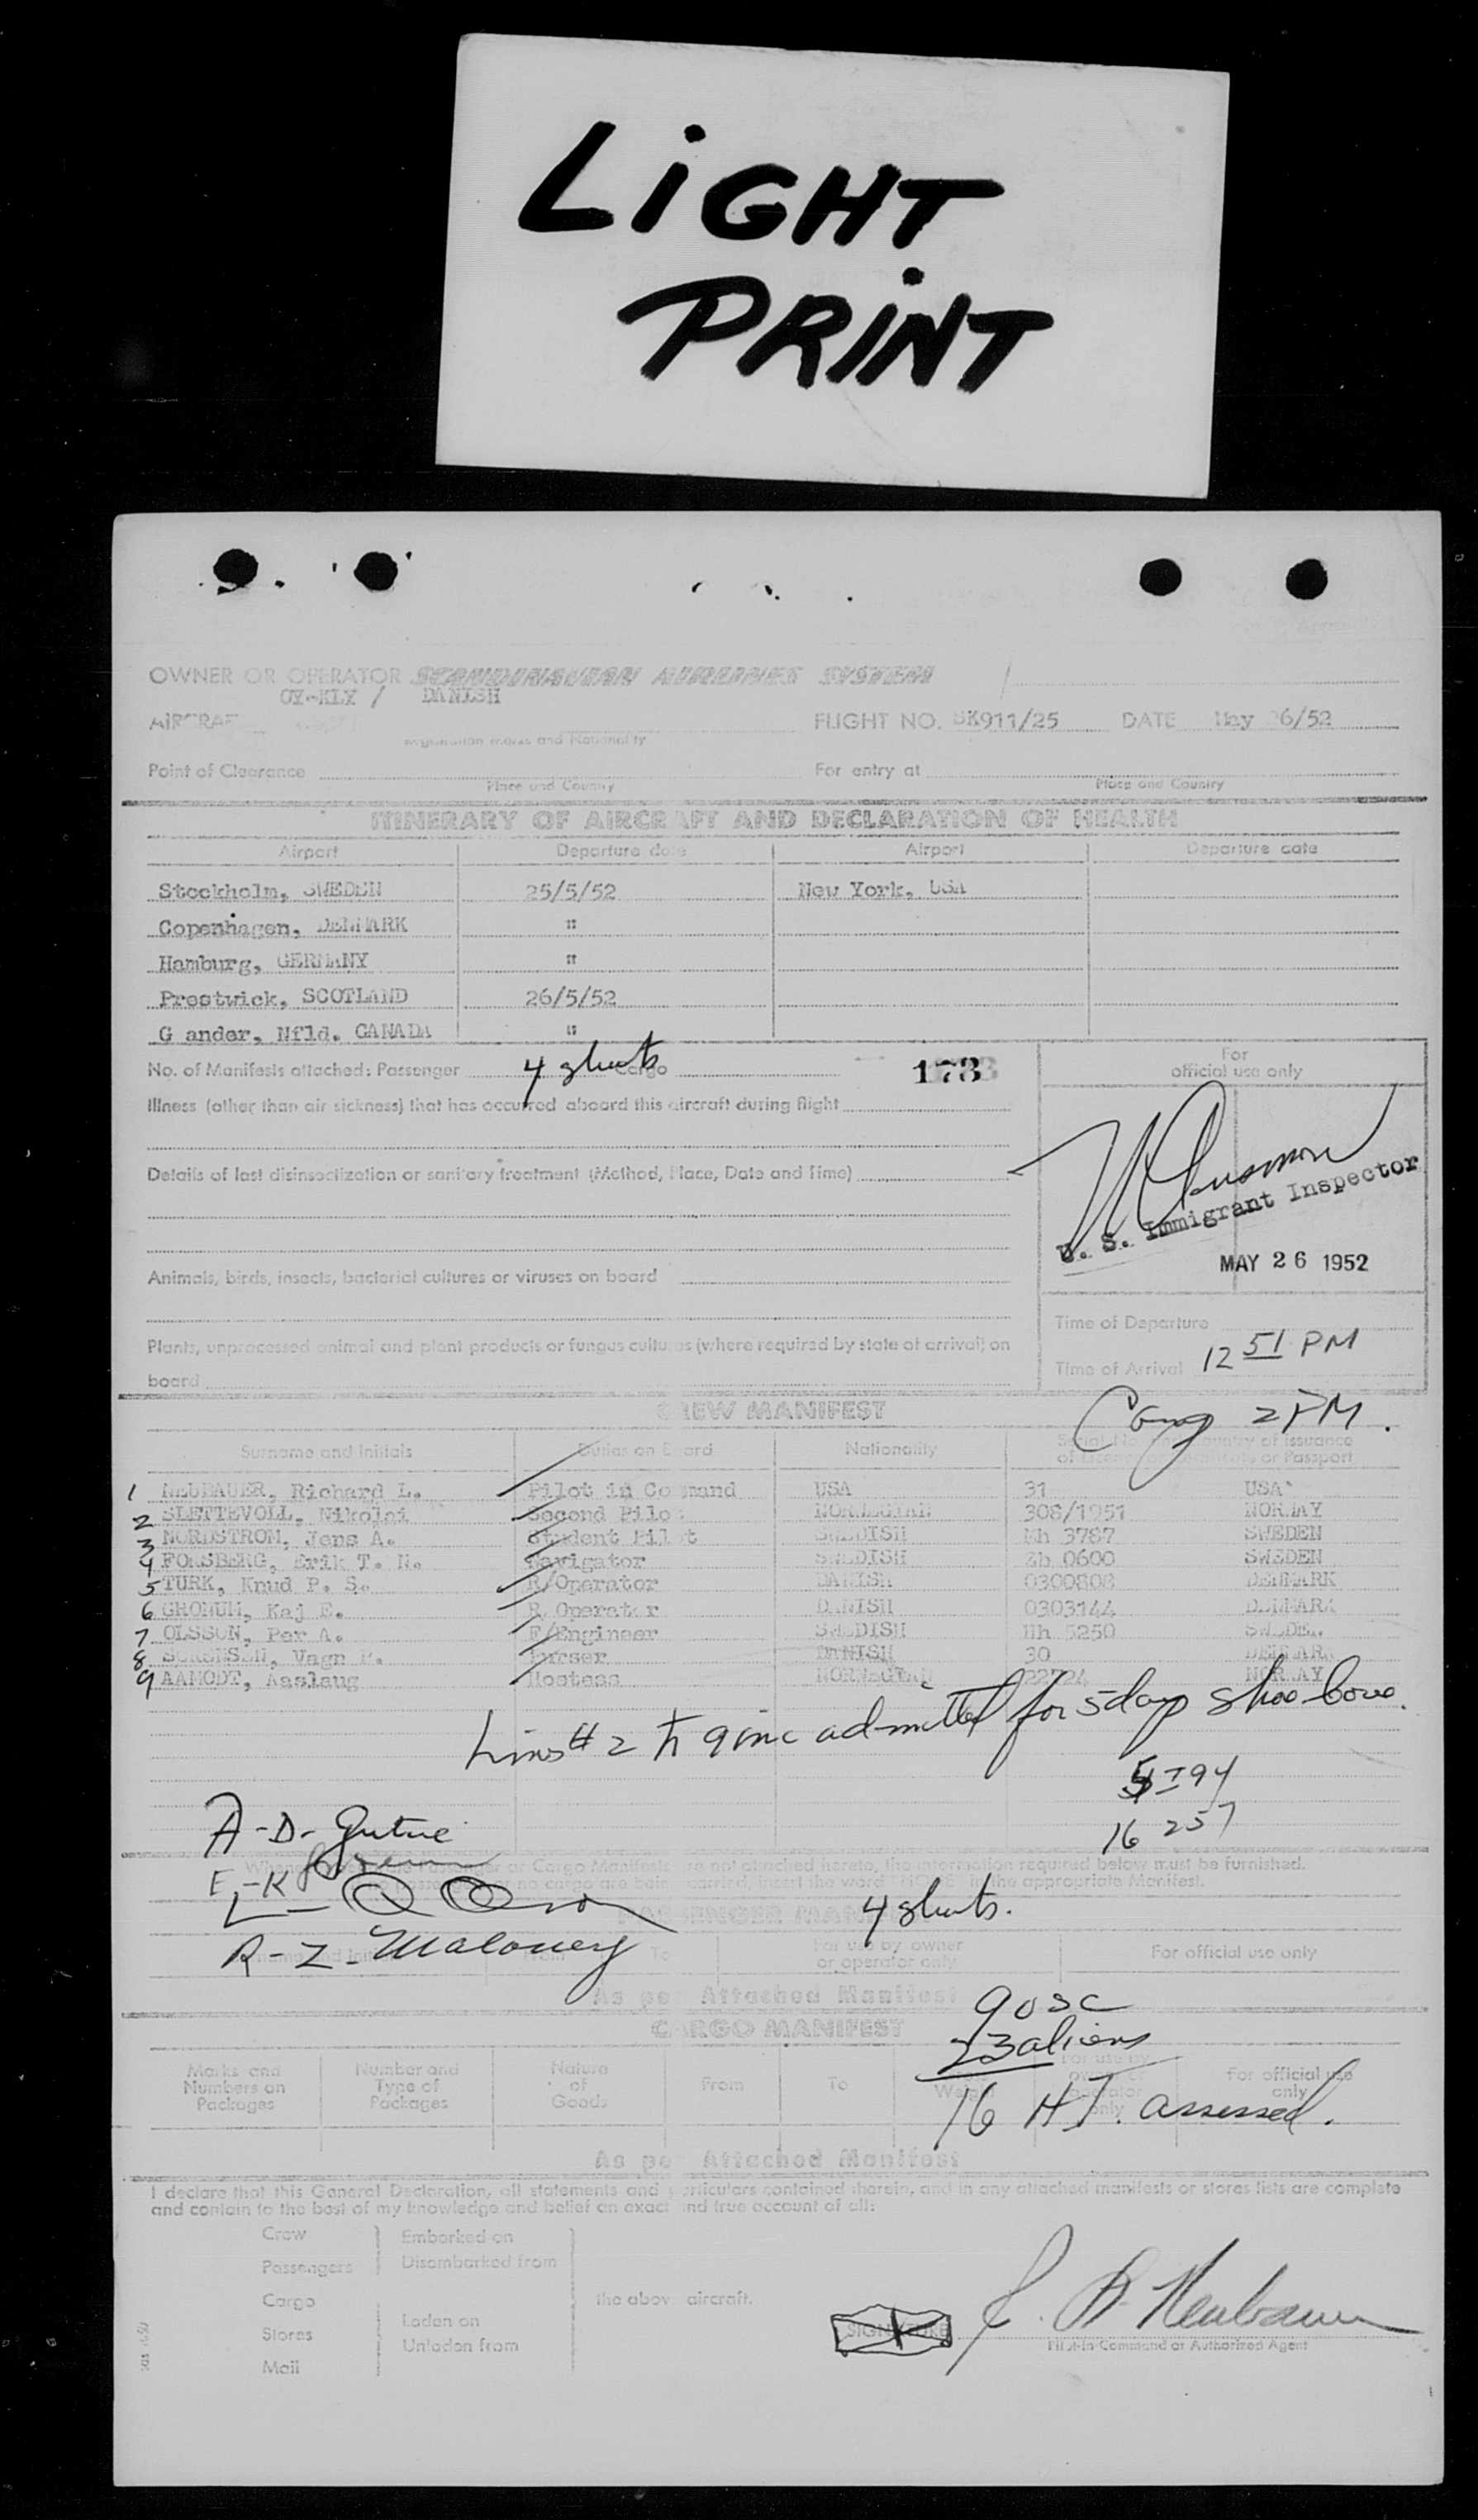 LiGHT
PRiNT
OWNER OR OPERATOR SCANDINAVIAN AIRLINES SYSTEM /
OY-KLY / DANISH
AIRCRAFT FLIGHT NO. SK911/25 DATE May 26/52
Registration marks and Nationality
Point of Clearance For entry at
Place and Country Place and Country
ITINERARY OF AIRCRAFT AND DECLARATION OF HEALTH
Airport Departure date Airport Departure date
Stockholm, SWEDEN 25/5/52 New York, USA
Copenhagen, DENMARK "
Hamburg, GERMANY "
Prestwick, SCOTLAND 26/5/52
G ander, Nfld. CANADA "
No. of Manifests attached: Passenger 4 sheets Cargo 173
For
official use only
Illness (other than air sickness) that has occurred aboard this aircraft during flight
Details of last disinsectization or sanitary treatment (Method, Place, Date and Time)
U. S. Immigrant Inspector
MAY 26 1952
Animals, birds, insects, bacterial cultures or viruses on board
Time of Departure
Plants, unprocessed animal and plant products or fungus cultures (where required by state of arrival) on
board
Time of Arrival 12 51 PM
CREW MANIFEST
2 PM.
Surname and Initials Duties on Board Nationality Serial No. and Country of issuance
of License or Certificate or Passport
1 NEUBAUER, Richard L. Pilot in Command USA 31 USA
2 SLETTEVOLL, Nikolai Second Pilot NORWEGIAN 308/1951 NORWAY
3 NORDSTROM, Jens A. Student Pilot SWEDISH Mh 3787 SWEDEN
4 FORSBERG, Erik T. N. Navigator SWEDISH Zb 0600 SWEDEN
5 TURK, Knud P. S. R/Operator DANISH 0300808 DENMARK
6 GRONUM, Kaj E. R/Operator DANISH 0303144 DENMARK
7 OLSSON, Per A. F/Engineer SWEDISH Hh 5250 SWEDEN
8 SORENSEN, Vagn P. Purser DANISH 30 DENMARK
9 AAMODT, Aaslaug Hostess NORWEGIAN 22724 NORWAY
Lines # 2 to 9 inc admitted for 5 days
94
16 257
A-D-
E-K
L-
R-Z- Maloney
or Cargo Manifests are not attached hereto, the information required below must be furnished.
no cargo are being carried, insert the word "NONE" in the appropriate Manifest.
PASSENGER MANIFEST 4 sheets.
To For use by owner
or operator only For official use only
As per Attached Manifest
9 USC
23 aliens
16 HT. assessed.
CARGO MANIFEST
Marks and
Numbers on
Packages
Number and
Type of
Packages
Nature
of
Goods
From To Weight
For use by
owner or
operator
only
For official use
only
As per Attached Manifest
I declare that this General Declaration, all statements and particulars contained therein, and in any attached manifests or stores lists are complete
and contain to the best of my knowledge and belief an exact and true account of all:
Crew Embarked on
Passengers Disembarked from
Cargo the above aircraft.
Stores Laden on
Unladen from
Mail
SIGNATURE Neubauer
Pilot-in-Command or Authorized Agent